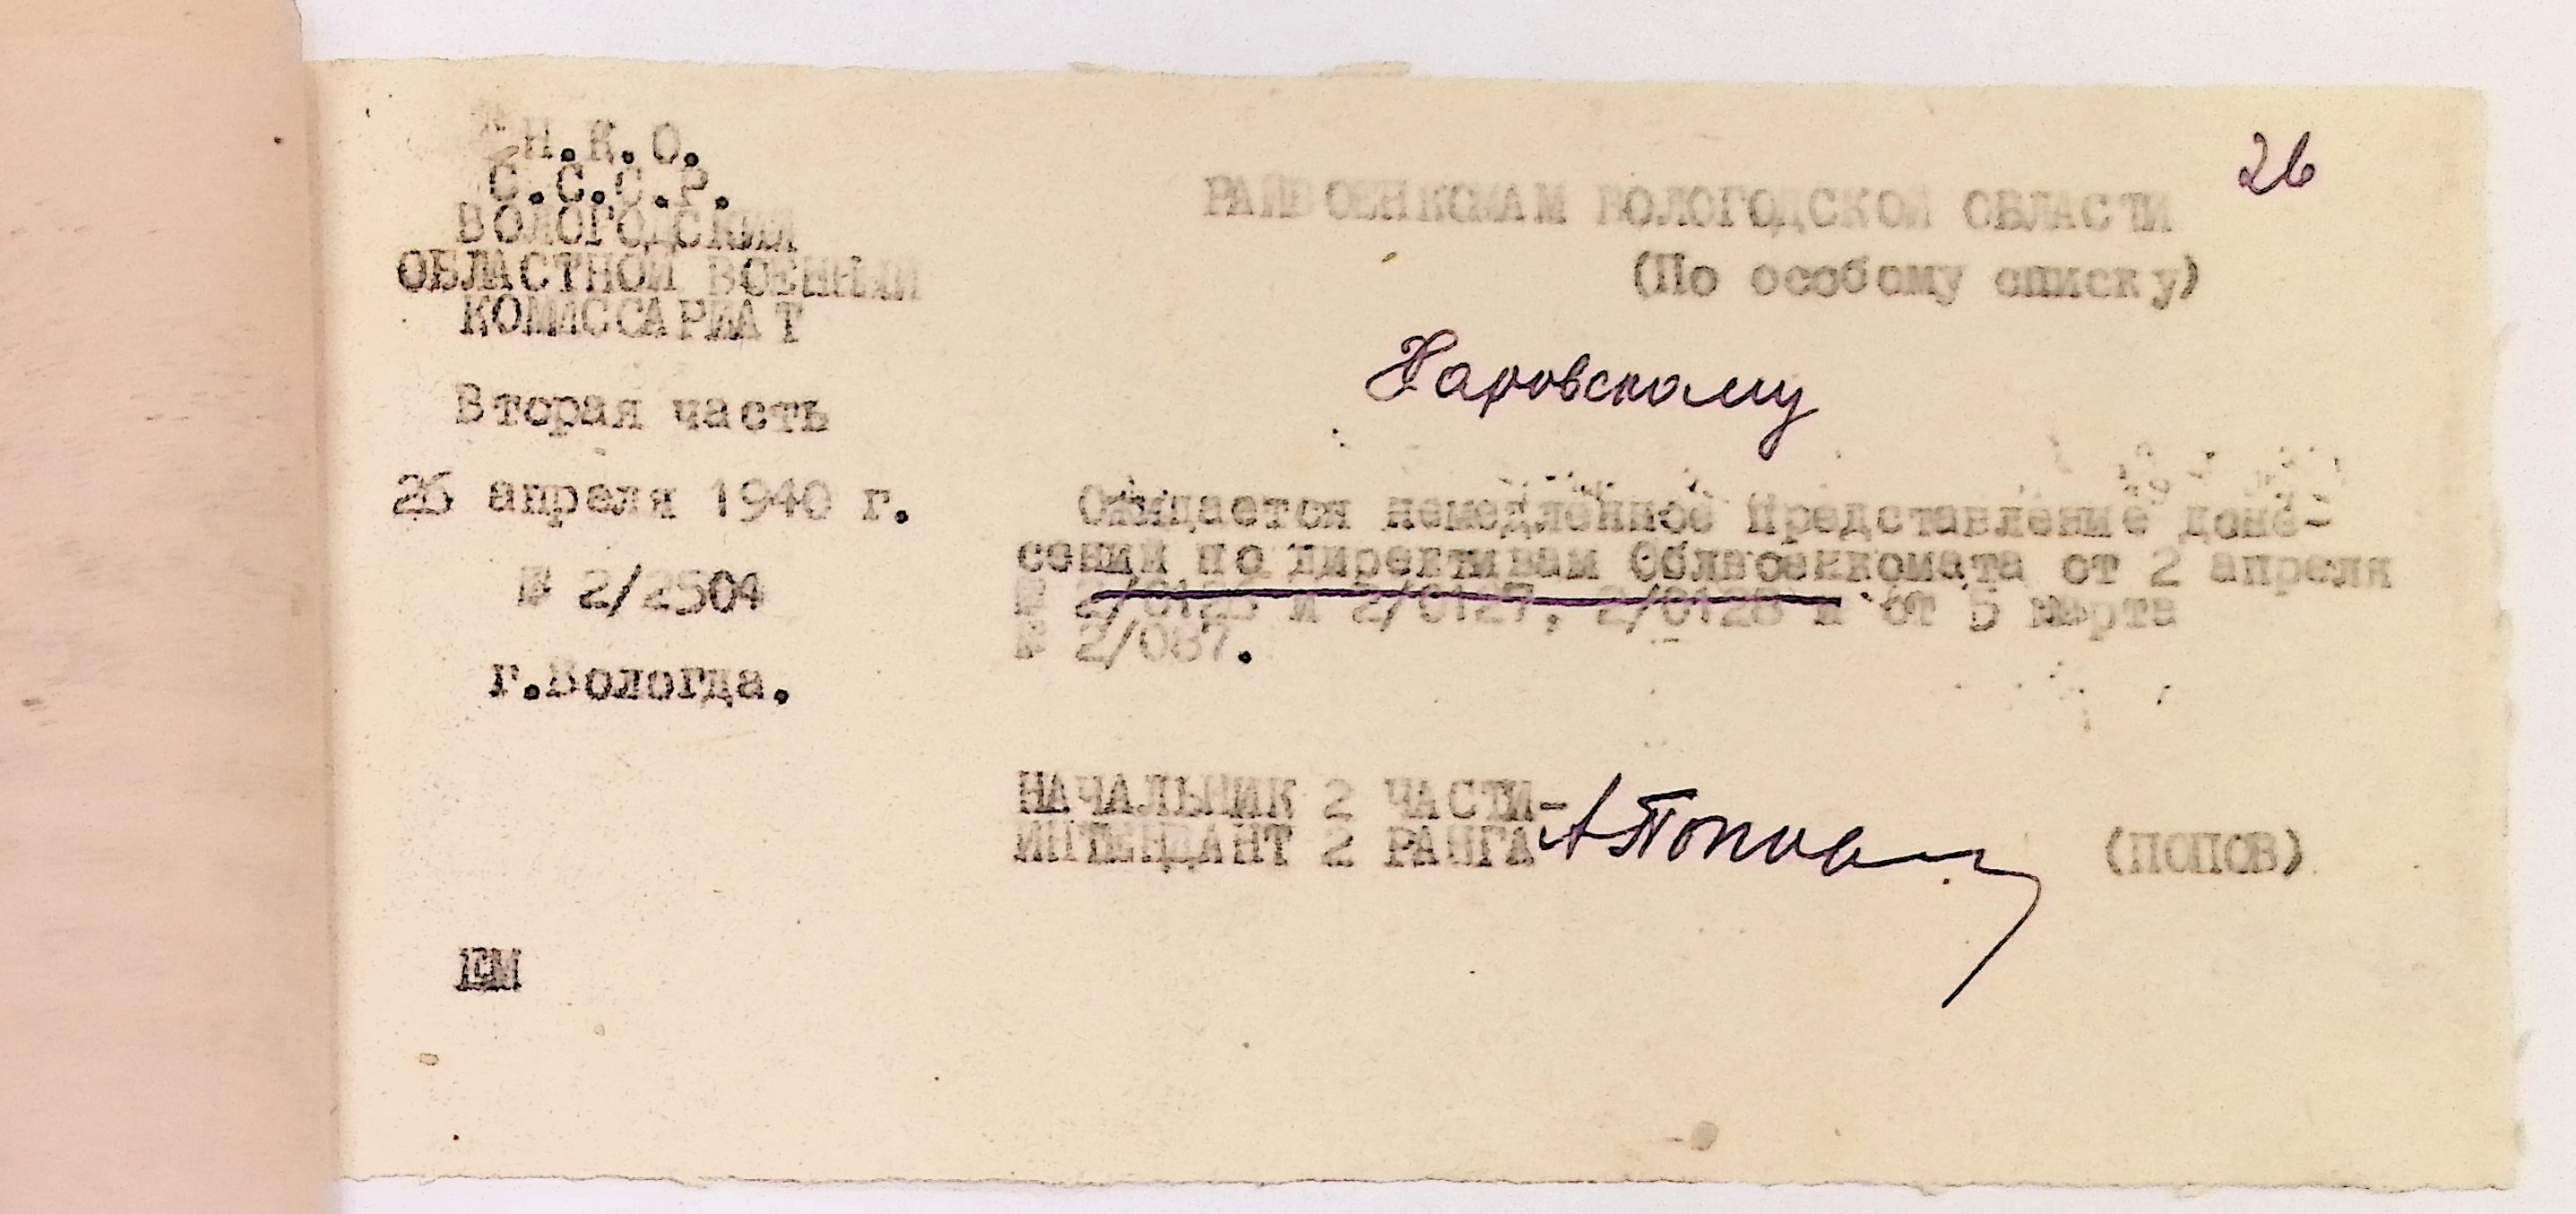 Н.К.О.
С.С.С.Р.
ВОЛОГОДСКИЙ
ОБЛАСТНОЙ ВОЕННЫЙ
КОМИССАРИАТ
Вторая часть
26 апреля 1940 г.
№ 2/2504
г.Вологда.
26
РАЙВОЕНКОМАМ ВОЛОГОДСКОЙ ОБЛАСТИ
(По особому списку)
Харовскому
Ожидается немедленное представление доне-
сений по директивам Облвоенкомата от 2 апреля
№ 2/0125 и 2/0127, 2/0128 и от 5 марта
№ 2/087.
НАЧАЛЬНИК 2 ЧАСТИ-
ИНТЕНДАНТ 2 РАНГА
АПопов
(ПОПОВ)
ЕМ